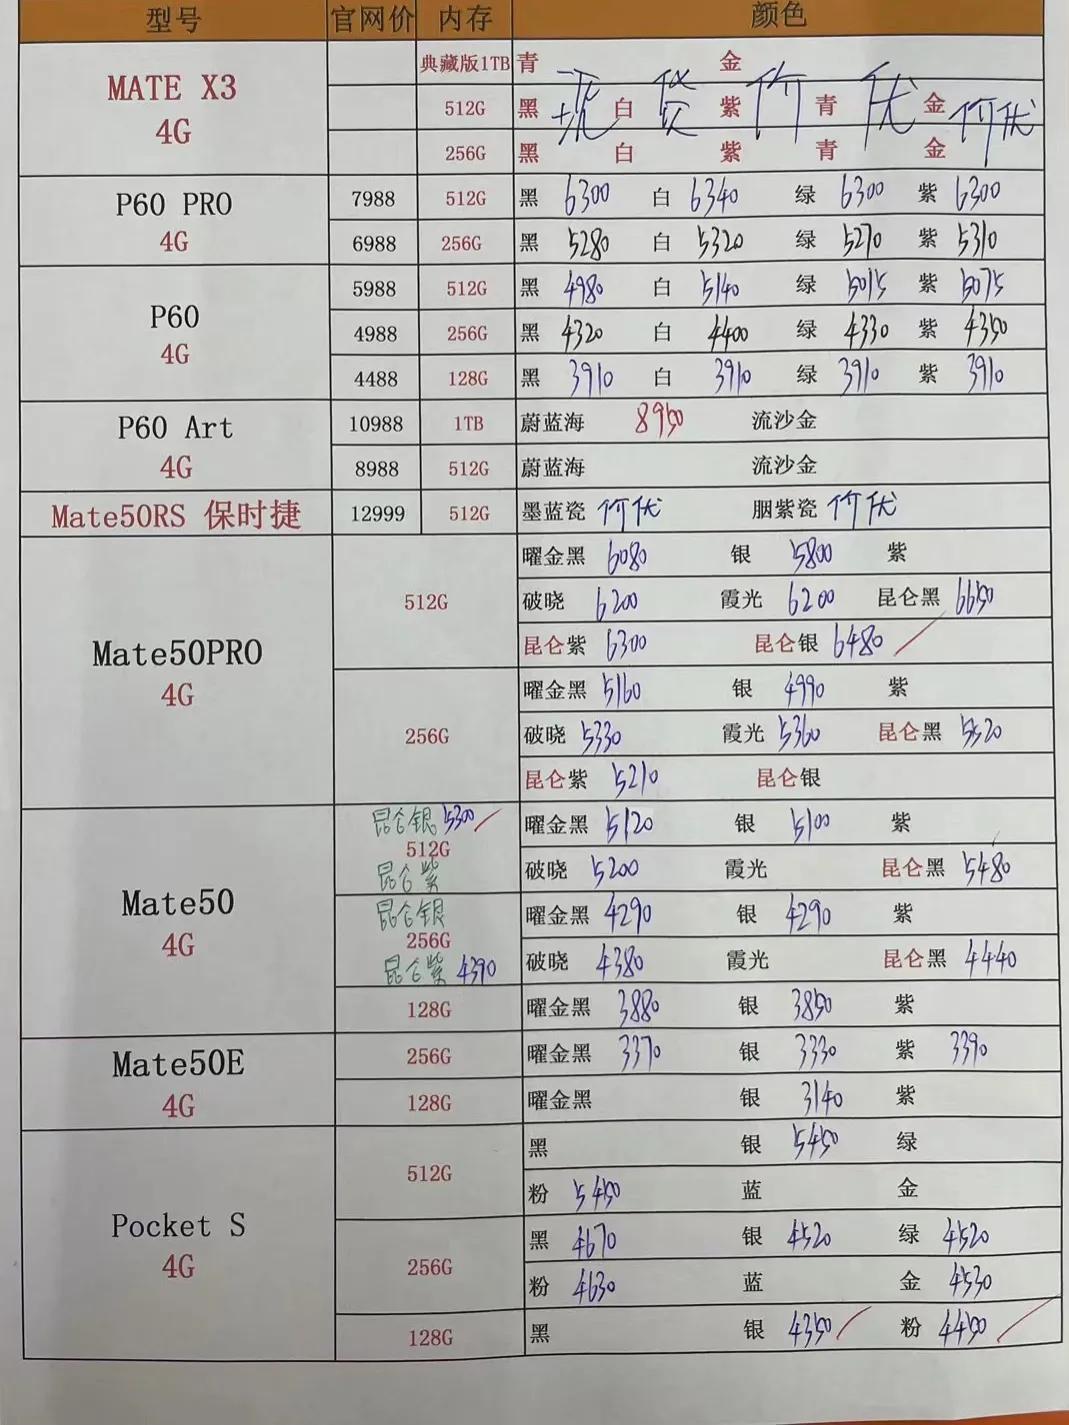 型号 官网价 内存 颜色
MATE X3 4G 典藏版1TB 青 金
512G 黑 白 紫 青 金
现货 价优 价优
256G 黑 白 紫 青 金
P60 PRO 4G 7988 512G 黑 6300 白 6340 绿 6300 紫 6300
6988 256G 黑 5280 白 5320 绿 5270 紫 5310
P60 4G 5988 512G 黑 4980 白 5140 绿 5015 紫 5075
4988 256G 黑 4320 白 4400 绿 4330 紫 4350
4488 128G 黑 3910 白 3910 绿 3910 紫 3910
P60 Art 4G 10988 1TB 蔚蓝海 8950 流沙金
8988 512G 蔚蓝海 流沙金
Mate50RS 保时捷 12999 512G 墨蓝瓷 价优 胭紫瓷 价优
Mate50PRO 4G 512G 曜金黑 6080 银 5800 紫
破晓 6200 霞光 6200 昆仑黑 6650
昆仑紫 6300 昆仑银 6480
256G 曜金黑 5160 银 4990 紫
破晓 5330 霞光 5360 昆仑黑 5520
昆仑紫 5210 昆仑银
Mate50 4G 昆仑银 5300 512G 昆仑紫 曜金黑 5120 银 5100 紫
破晓 5200 霞光 昆仑黑 5480
昆仑银 256G 昆仑紫 4390 曜金黑 4290 银 4290 紫
破晓 4380 霞光 昆仑黑 4440
128G 曜金黑 3880 银 3850 紫
Mate50E 4G 256G 曜金黑 3370 银 3330 紫 3390
128G 曜金黑 银 3140 紫
Pocket S 4G 512G 黑 银 5450 绿
粉 5450 蓝 金
256G 黑 4670 银 4520 绿 4520
粉 4630 蓝 金 4530
128G 黑 银 4350 粉 4450